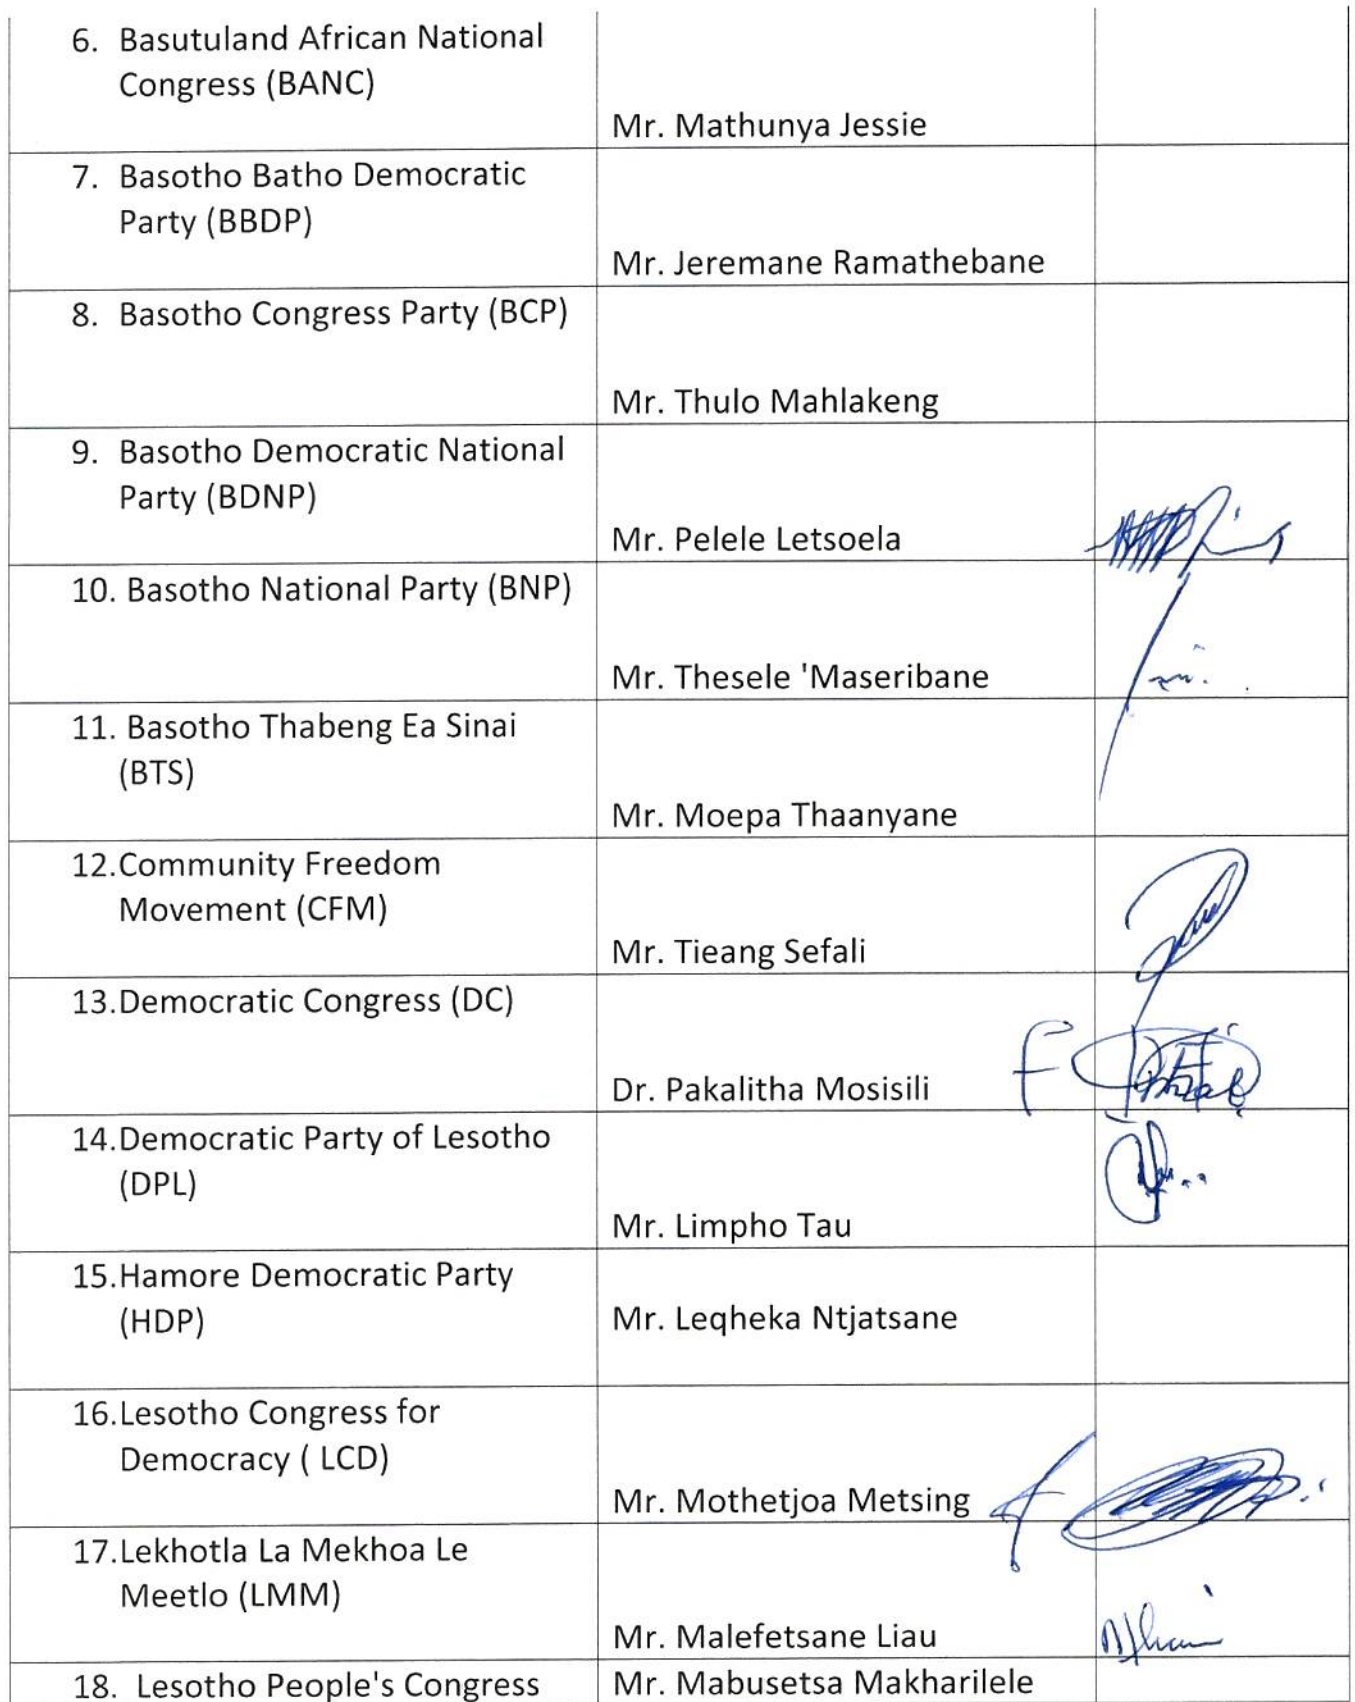 6. Basutuland African National
Congress (BANC)
Mr. Mathunya Jessie
7. Basotho Batho Democratic
Party (BBDP)
Mr. Jeremane Ramathebane
8. Basotho Congress Party (BCP)
Mr. Thulo Mahlakeng
9. Basotho Democratic National
Party (BDNP)
Mr. Pelele Letsoela
10. Basotho National Party (BNP)
Mr. Thesele 'Maseribane
11. Basotho Thabeng Ea Sinai
(BTS)
Mr. Moepa Thaanyane
12.Community Freedom
Movement (CFM)
Mr. Tieang Sefali
13.Democratic Congress (DC)
Dr. Pakalitha Mosisili
14.Democratic Party of Lesotho
(DPL)
Mr. Limpho Tau
15.Hamore Democratic Party
(HDP)
Mr. Leqheka Ntjatsane
16.Lesotho Congress for
Democracy ( LCD)
Mr. Mothetjoa Metsing
17.Lekhotla La Mekhoa Le
Meetlo (LMM)
Mr. Malefetsane Liau
18. Lesotho People's Congress
Mr. Mabusetsa Makharilele